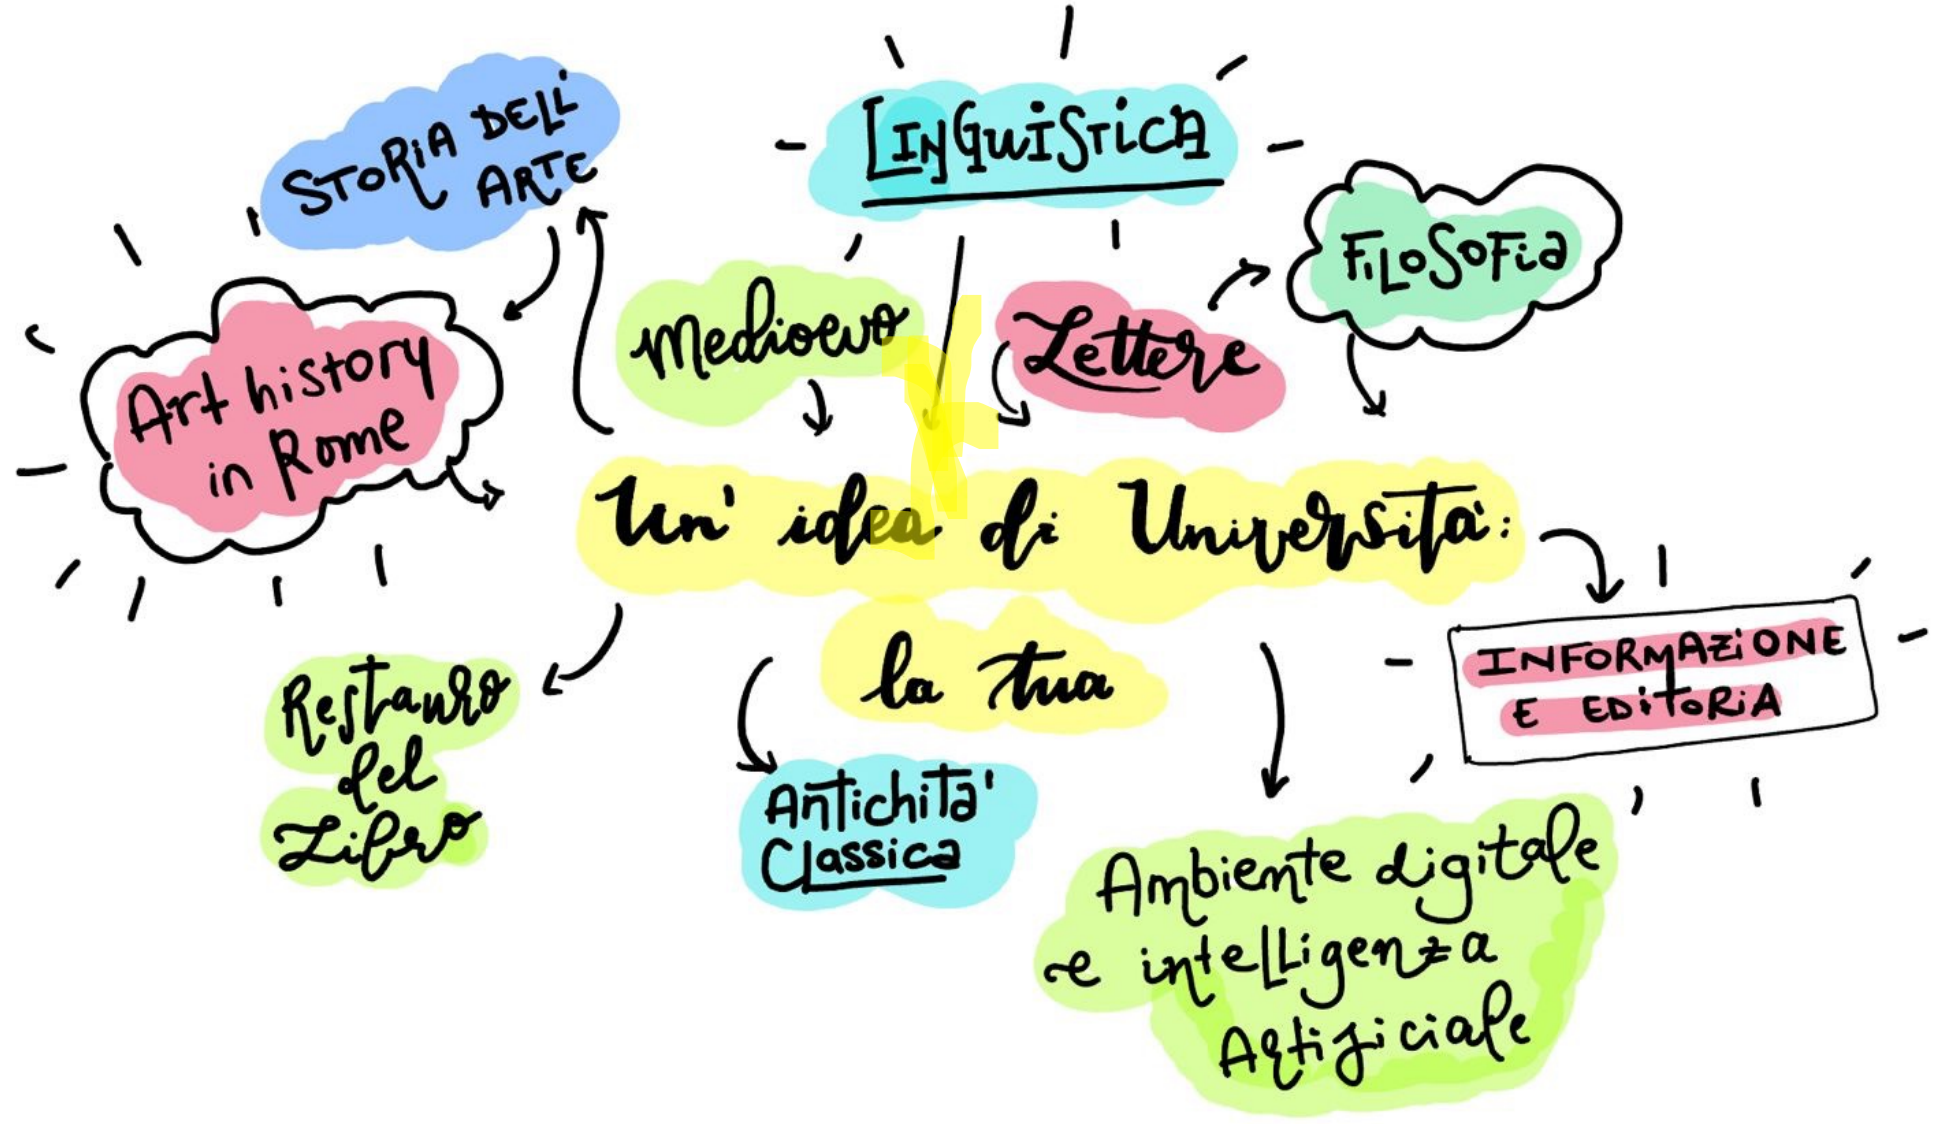 STORIA DELL'
ARTE
LINGUISTICA
FILOSOFIA
Medioevo
Lettere
Art history
in Rome
Un' idea di Universita':
la tua
INFORMAZIONE
E EDITORIA
Restauro
del
Libro
Antichita'
Classica
Ambiente digitale
e intelligenza
Artificiale